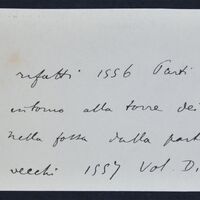 rifatti 1556 Parti
intorno alla torre dei
nella fossa dalla part
vecchi 1557 Vol. D.